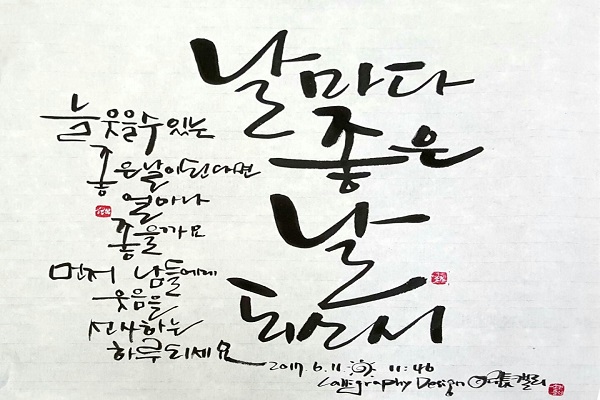 날마다
좋은
날
되소서
늘 웃을수 있는
좋은날이 된다면
얼마나
좋을까요
먼저 남들에게
웃음을
선사하는
하루되세요
2017. 6. 11. 11:46
Calligraphy Design